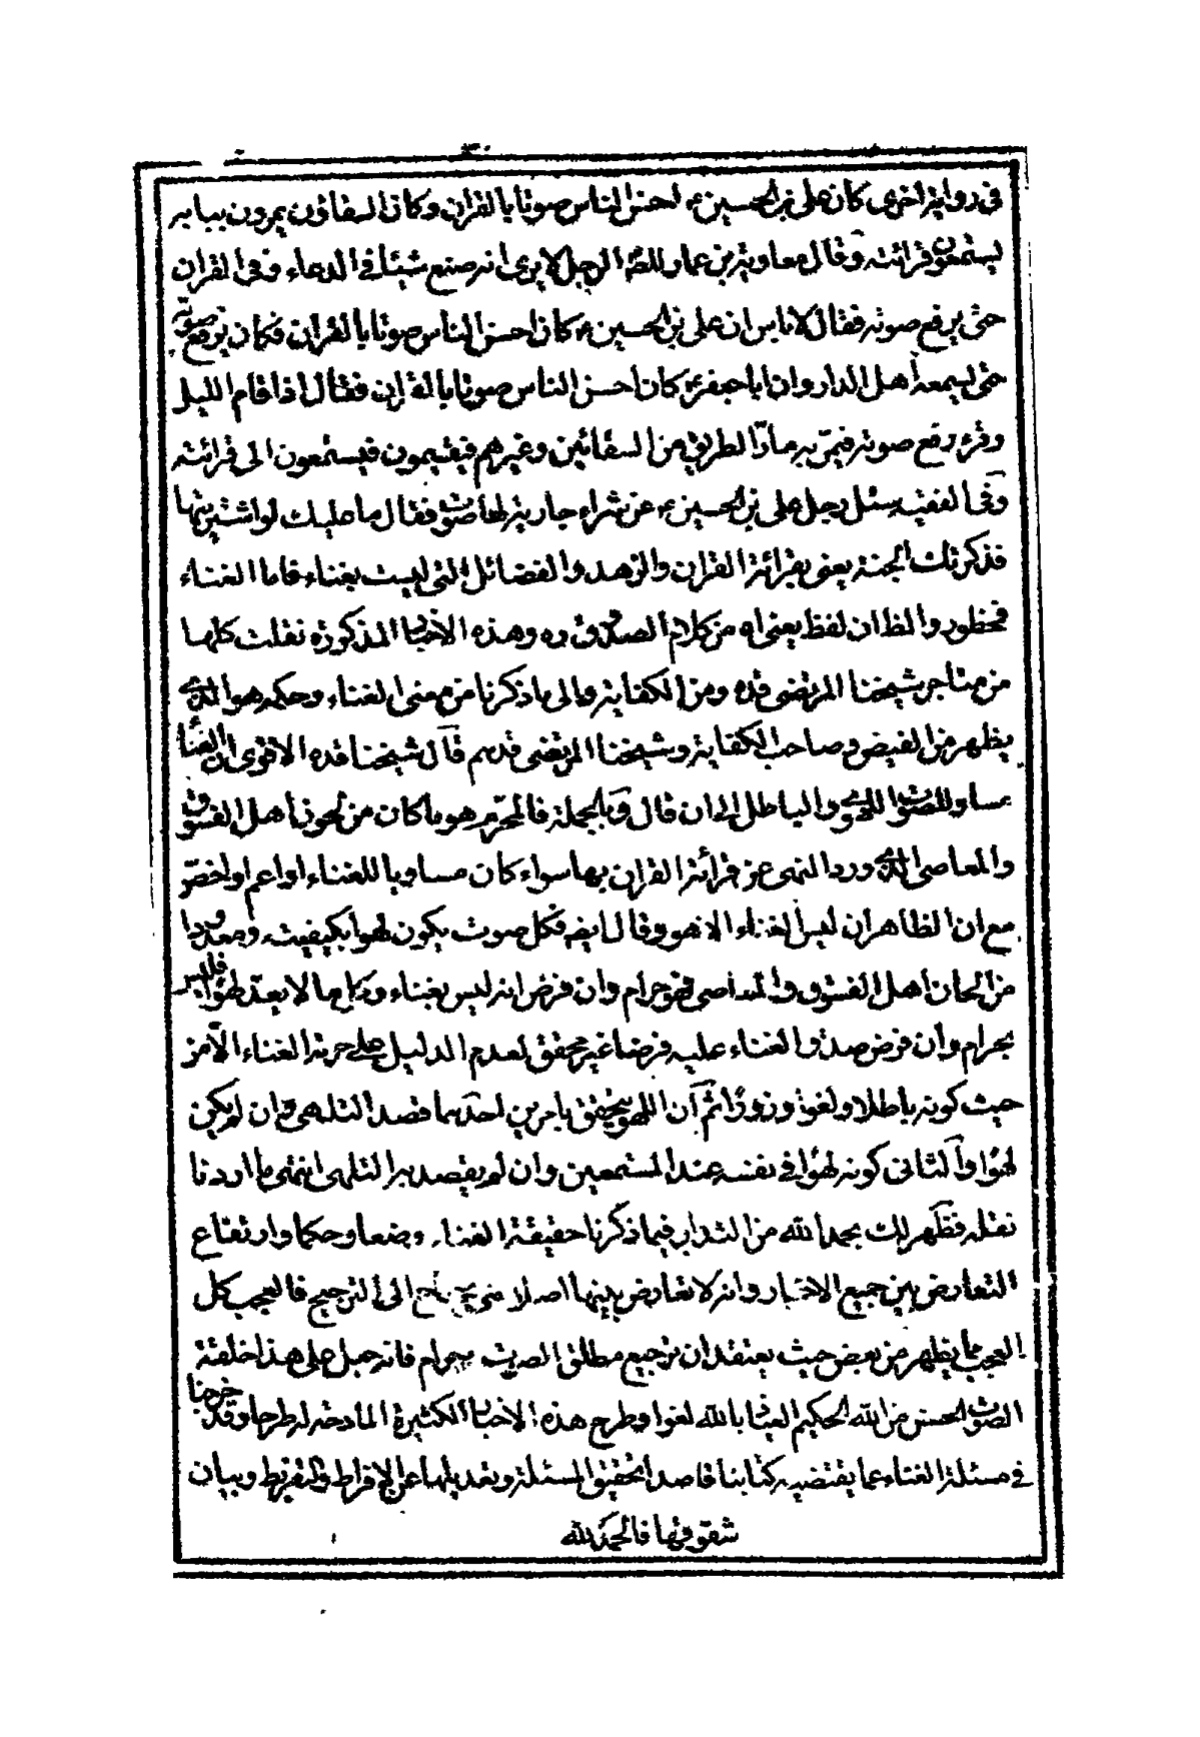 في رواية اخرى كان علي بن الحسين ع احسن الناس صوتا بالقران وكان السقاؤن يمرون ببابه
يستمعون قرائته وقال معاوية بن عمار للصه الرجل لا يرى انه صنع شيئا في الدعاء وفي القران
حتى يرفع صوته فقال لا باس ان علي بن الحسين ع كان احسن الناس صوتا بالقران فكان يرفع صوته
حتى يسمعه اهل الدار وان ابا جعفر ع كان احسن الناس صوتا بالقران فقال اذا قام الليل
وقرء رفع صوته فيمر به مارّ الطريق من السقائين وغيرهم فيقيمون فيستمعون الى قرائته
وفي الفقيه سئل رجل علي بن الحسين ع عن شراء جارية لها صوت فقال ما عليك لو اشتريتها
فذكرتك الجنة يعني بقرائة القران والزهد والفضائل التي ليست بغناء فاما الغناء
فمحظور والظ ان لفظ يعني اه من كلام الصدوق ره وهذه الاخبار المذكورة نقلت كلها
من متاجر شيخنا المرتضى قده ومن الكفاية والى ما ذكرنا من معنى الغناء وحكمه هو الذي
يظهر من الفيض وصاحب الكفاية وشيخنا المرتضى قدهم قال شيخنا قده الاقوى ان الغناء
مساو للصوت اللهوي والباطل الى ان قال وبالجملة فالمحرّم هو ما كان من لحون اهل الفسوق
والمعاصي الذي ورد النهي عن قرائة القران بها سواء كان مساويا للغناء او اعم او اخصّ
مع ان الظاهر ان ليس الغناء الا هو وقال ايضه فكل صوت يكون لهوا بكيفيته ومعدودا
من الحان اهل الفسوق والمعاصي فهو حرام وان فرض انه ليس بغناء وكل ما لا يعد لهوا فليس
بحرام وان فرض صدق الغناء عليه فرضا غير محقق لعدم الدليل على حرمة الغناء الا من
حيث كونه باطلا ولغوا وزورا ثم ان اللهو يتحقق بامرين احدهما قصد التلهي وان لم يكن
لهوا والثاني كونه لهوا في نفسه عند المستمعين وان لم يقصد به التلهي انتهى ما اردنا
نقله فظهر لك بحمد الله من التدابر فيما ذكرنا حقيقة الغناء وضعا وحكما وارتفاع
التعارض بين جميع الاخبار وانه لا تعارض بينها اصلا حتى يحتاج الى الترجيح فالعجب كل
العجب مما يظهر من بعض حيث يعتقد ان ترجيع مطلق الصوت حرام فانه جعل على هذا خلقة
الصوت الحسن من الله الحكيم العياذ بالله لغوا وطرح هذه الاخبار الكثيرة المادحة له طرحا وقد خرجنا
في مسئلة الغناء عما يقتضيه كتابنا قاصدا لتحقيق المسئلة وتعديلها عن الافراط والتفريط وبيان
شقوقها فالحمد لله